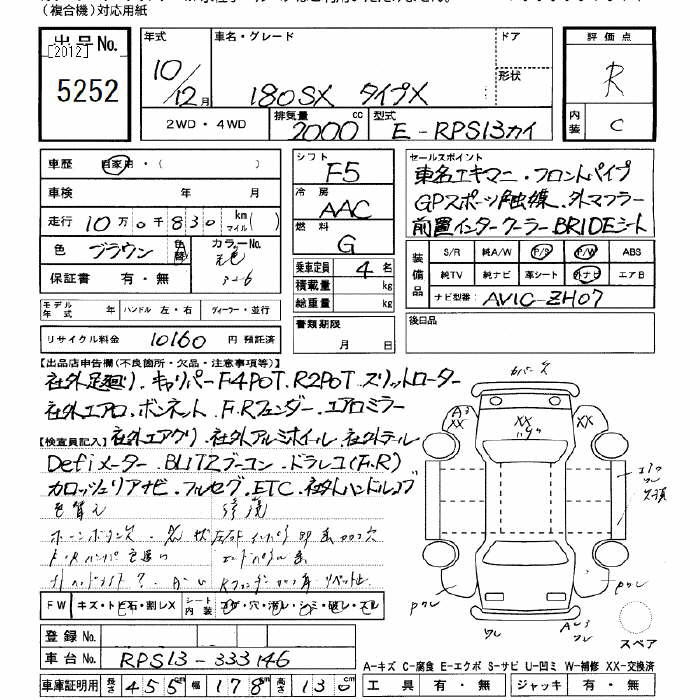 （複合機）対応用紙
出品No.
[2012]
5252
年式
10/12月
車名・グレード
180SX タイプX
ドア
形状
評価点
R
内装
C
2WD・4WD
排気量
2000cc
型式
E-RPS13カイ
車歴 自家用・( )
車検 年 月
走行 10万0千830km マイル( )
色 ブラウン 色替
カラーNo.
保証書 有・無
モデル年式 年 ハンドル 左・右 ディーラー・並行
リサイクル料金 10160 円 預託済
シフト F5
冷房 AAC
燃料 G
乗車定員 4名
積載量 kg
総重量 kg
書類期限
月 日
セールスポイント
車名エキマニ・フロントパイプ
GPスポーツ触媒、外マフラー
前置インタークーラー BRIDEシート
装備品
S/R 純A/W P/S P/W ABS
純TV 純ナビ 革シート 外ナビ エアB
ナビ型番 AVIC-ZH07
後日品
【出品店申告欄(不良箇所・欠品・注意事項等)】
社外足廻り、キャリパーF4POT、R2POT スリットローター
社外エアロ、ボンネット、F・Rフェンダー、エアロミラー
【検査員記入】社外エアクリ、社外アルミホイール、社外テール
Defiメーター、BLITZブーコン、ドラレコ(F,R)
カロッツェリアナビ、フルセグ、ETC、社外ハンドル
色替え 修復
FW キズ・トビ石・割レX シート内装 コゲ・穴・汚レ・シミ・破レ・スレ
登録No.
車台No. RPS13-333146
車庫証明用 長さ 455 幅 178 高さ 130
A3
XX
XX
XX
ワレ
スペア
A-キズ C-腐食 E-エクボ S-サビ U-凹ミ W-補修 XX-交換済
工具 有・無 ジャッキ 有・無